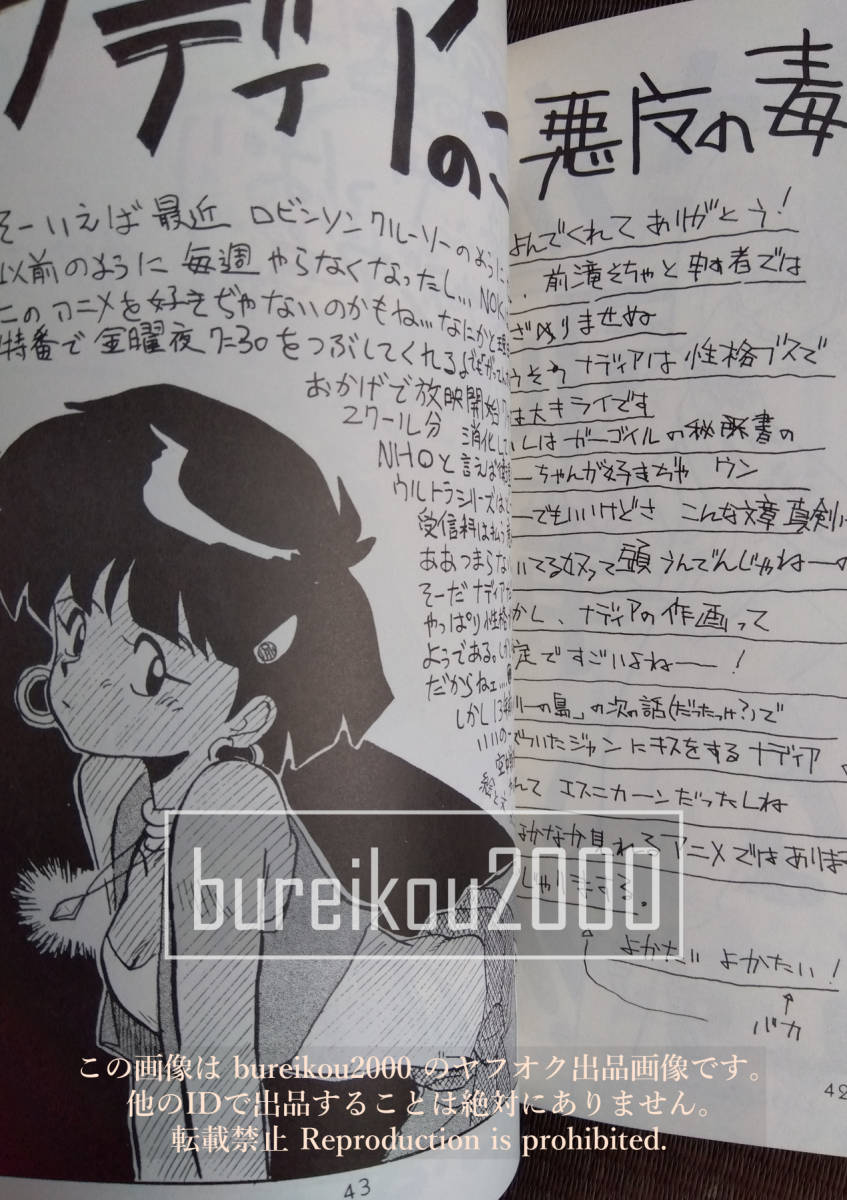 ナディアの
そーいえば 最近 ロビンソンクルーソーのように
以前のように 毎週 やらなくなったし… NOK
このアニメを好きぢゃないのかもね…なにかと
特番で 金曜夜7:30をつぶしてくれるよ
おかげで 放映開始
2クール分 消化して
NHOと言えば
ウルトラシリーズは
受信料は払う
ああつまらない
そーだ ナディア
やっぱり性格
ようである。
だからねェ…
しかし13
いいの
絵と
43
悪皮の毒
よんでくれて ありがとう!
、前滝そちゃと 申す者では
ざありませぬ
うそう ナディアは 性格ブスで
は大キライです
しはガーゴイルの秘書の
ーちゃんが好きぢゃ ウン
ーでもいいけどさ こんな文章 真剣に
いてる奴って 頭うんでんじゃねーの
かし、ナディアの作画って
定ですごいよねー!
リーの島」の次の話(だったっけ?)で
づいたジャンにキスをする ナディア
んて エスニカーンだったしね
なかなか見れるアニメではありま
じゃりまする。
よかたい よかたい!
バカ
42
bureikou2000
この画像は bureikou2000 のヤフオク出品画像です。
他のIDで出品することは絶対にありません。
転載禁止 Reproduction is prohibited.